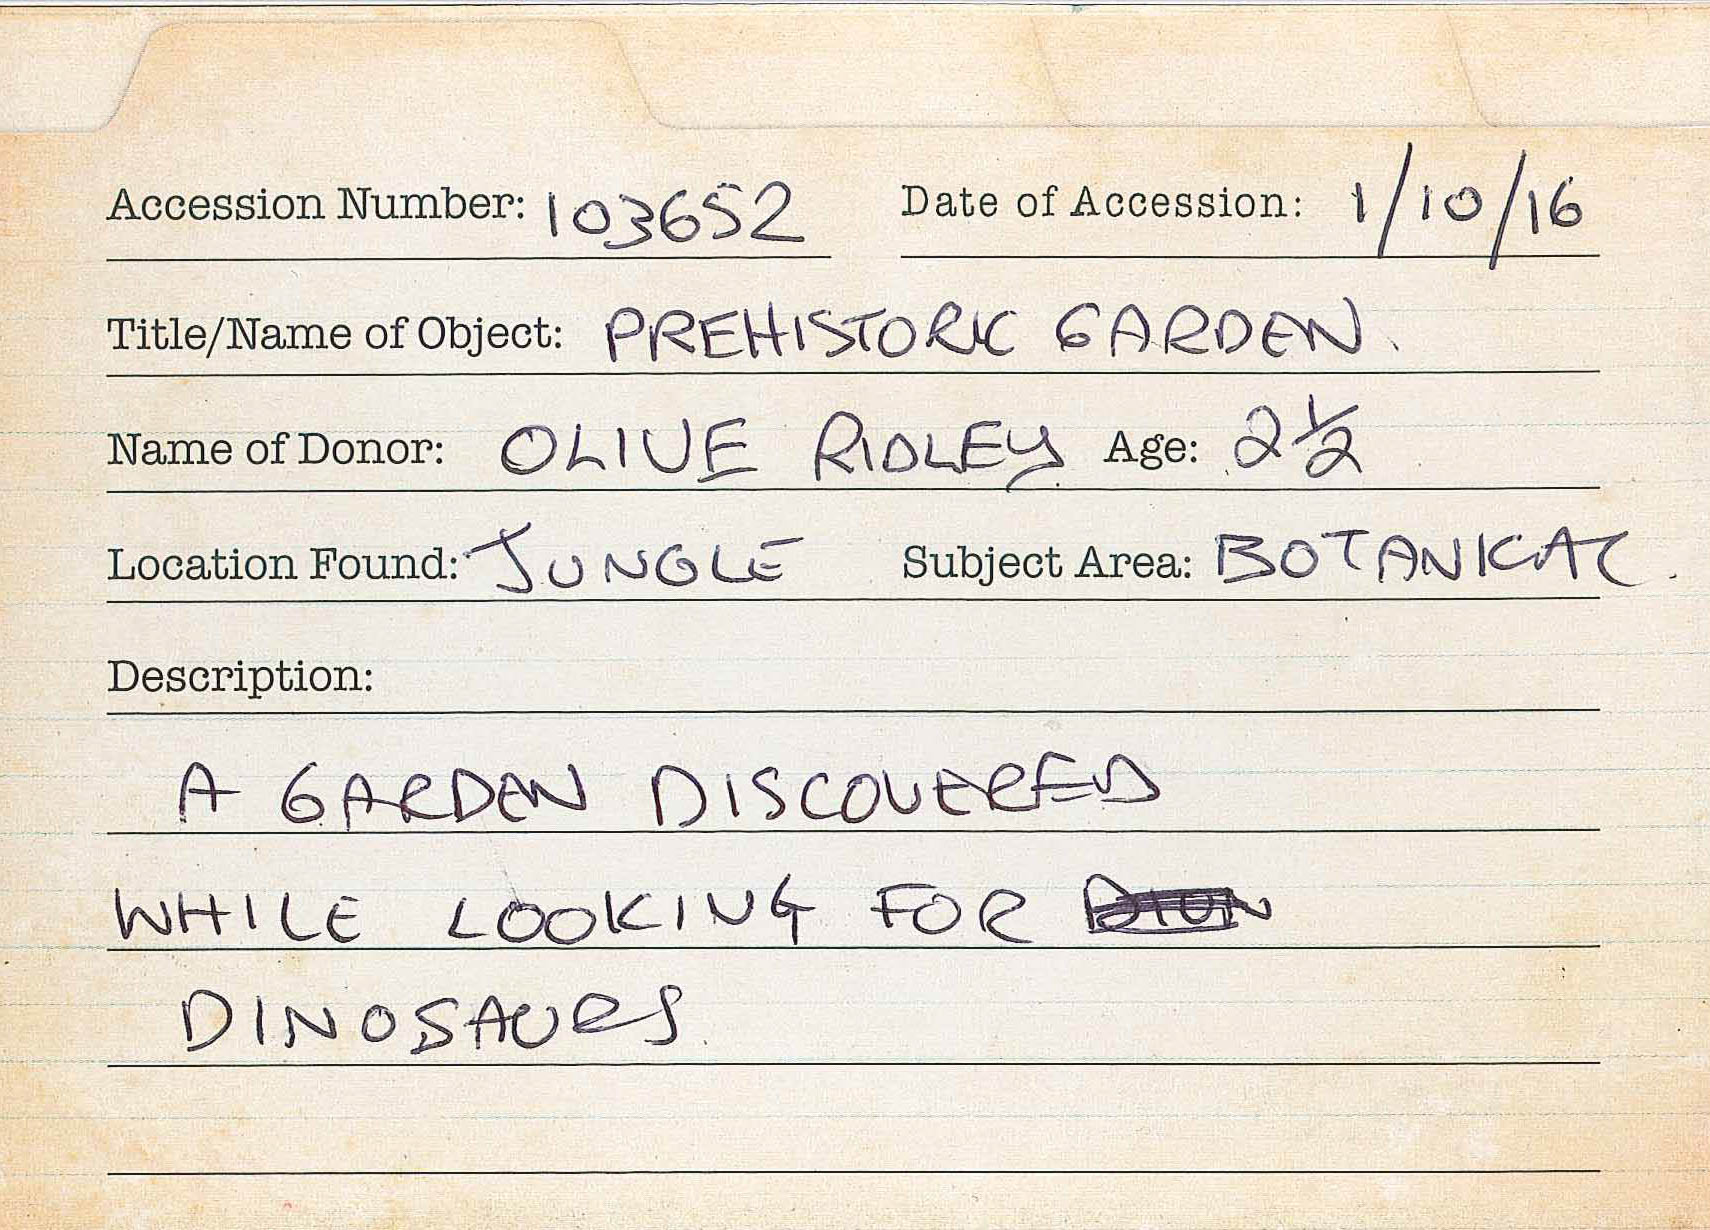 Accession Number: 103652 Date of Accession: 1/10/16
Title/Name of Object: PREHISTORIC GARDEN.
Name of Donor: OLIVE RIDLEY Age: 2 1/2
Location Found: JUNGLE Subject Area: BOTANICAL.
Description:
A GARDEN DISCOVERED
WHILE LOOKING FOR
DINOSAURS.